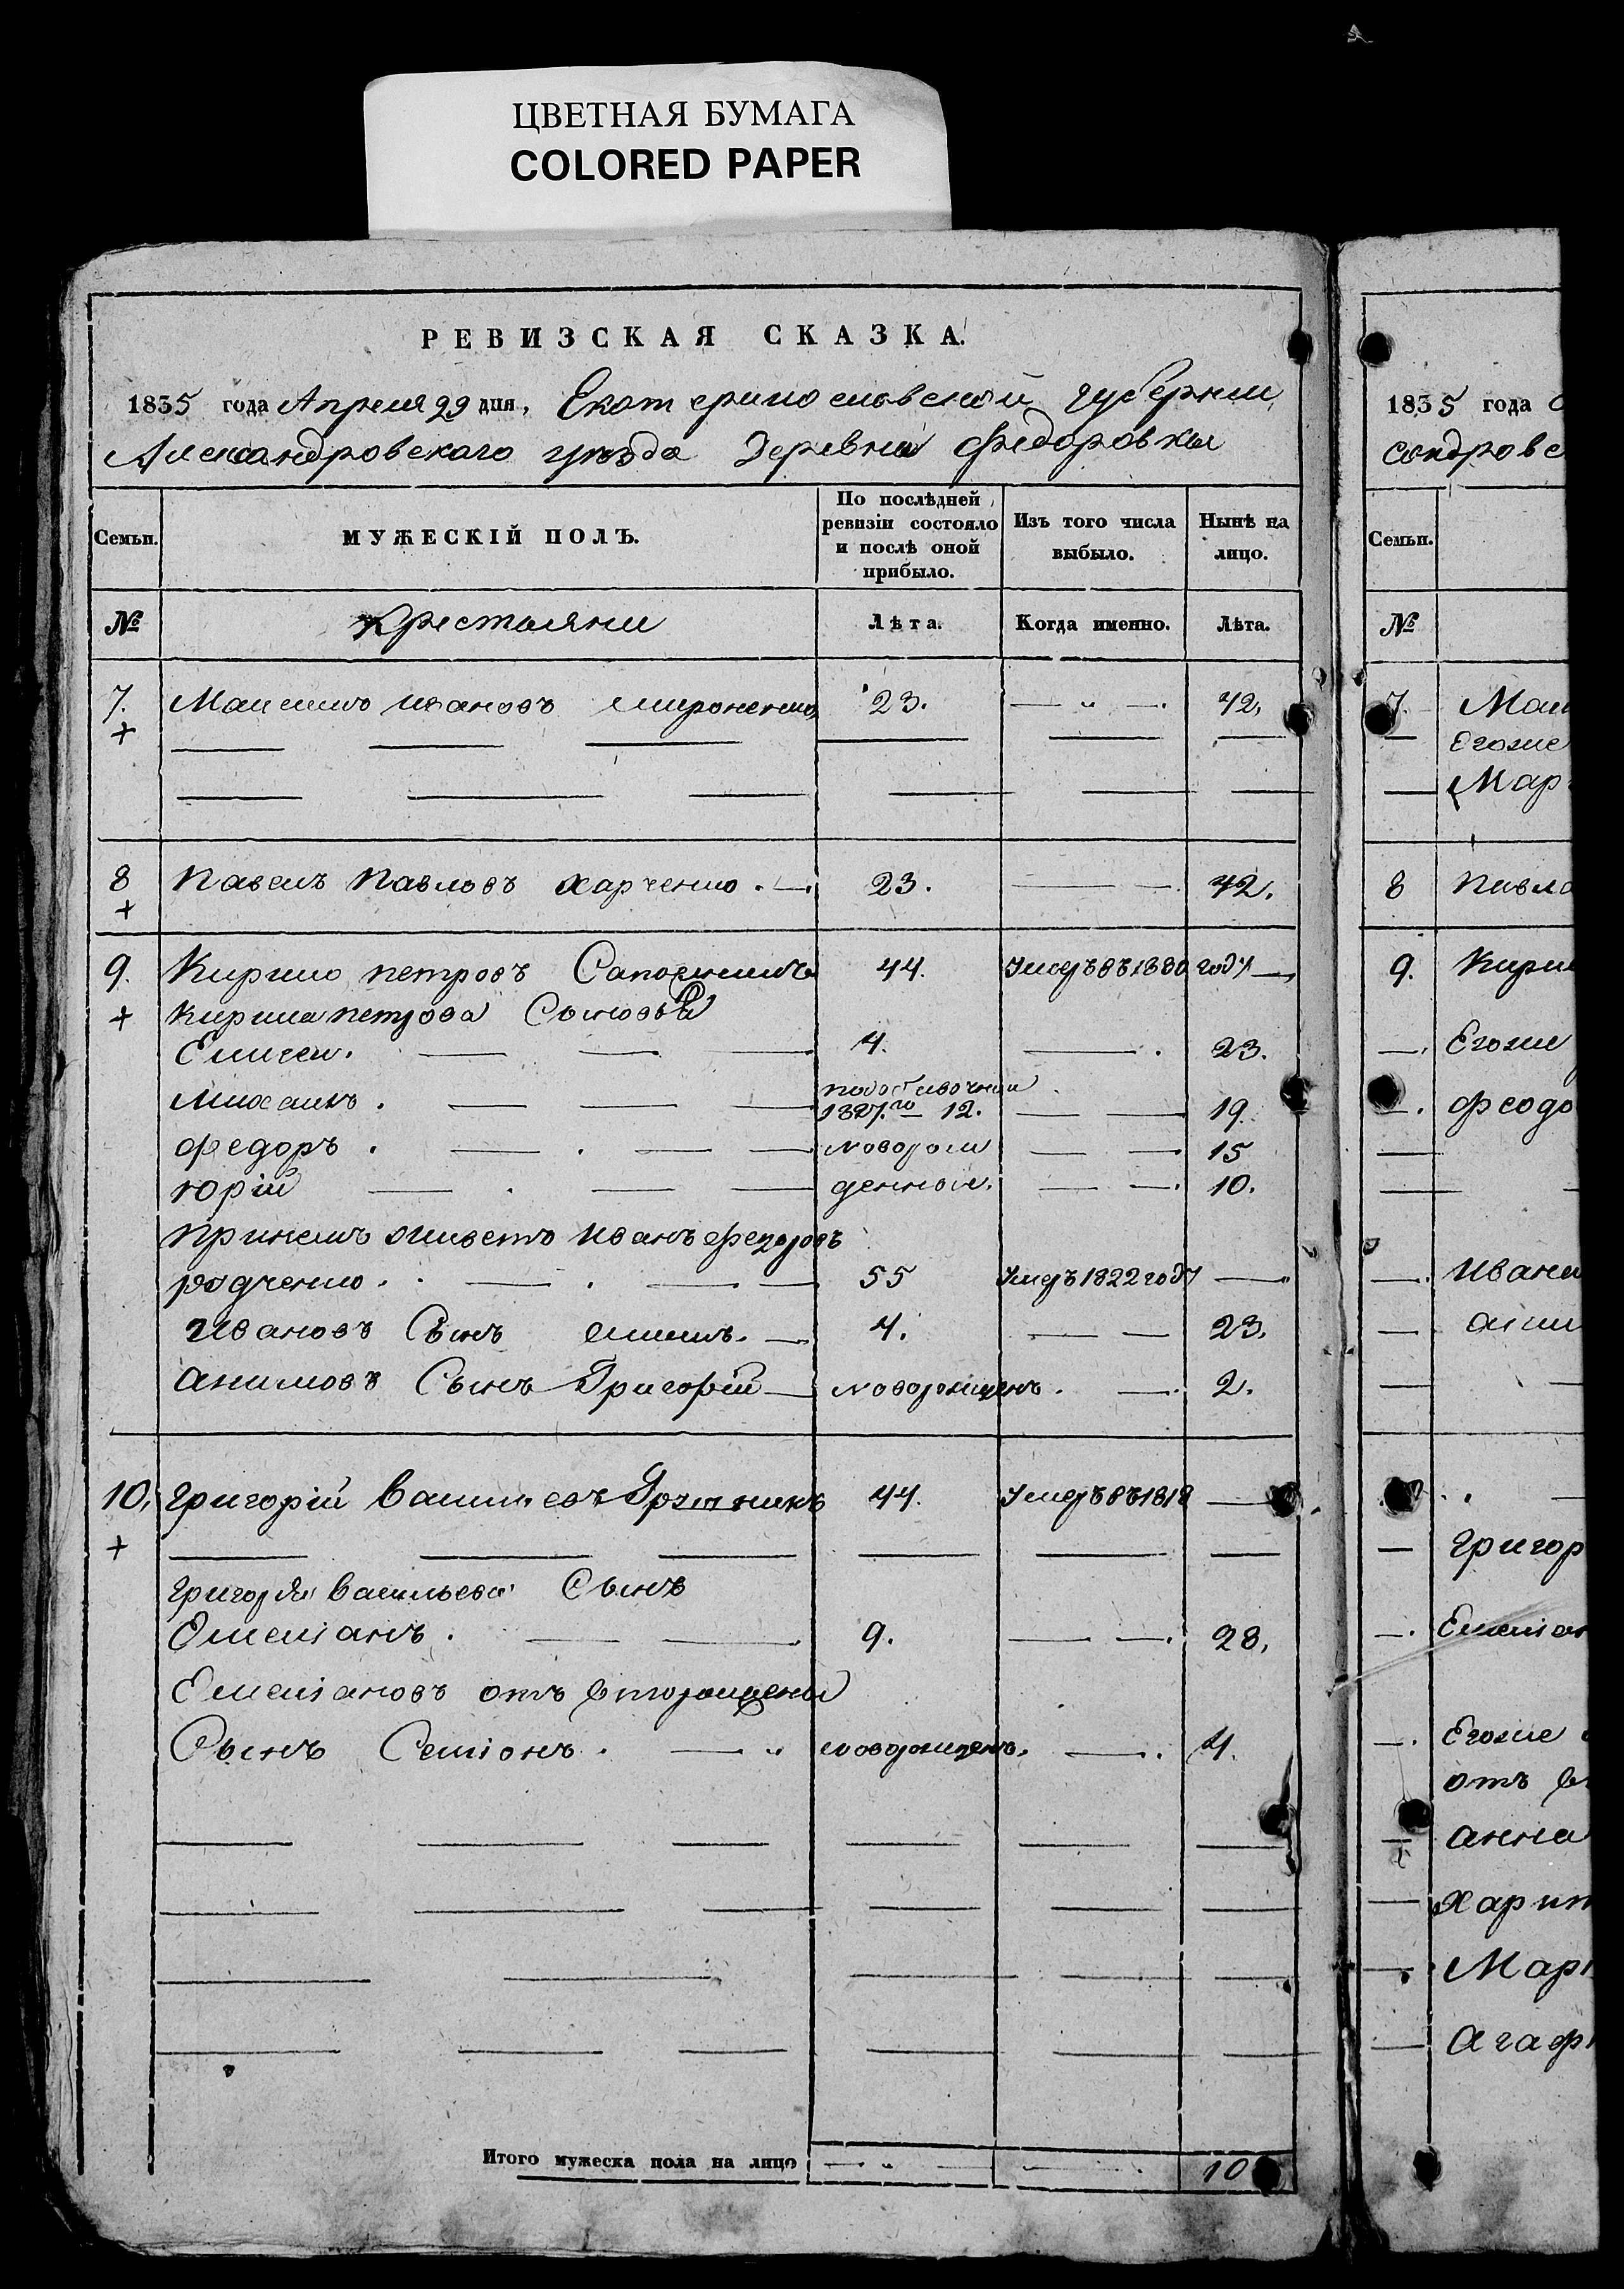 ЦВЕТНАЯ БУМАГА
COLORED PAPER
РЕВИЗСКАЯ СКАЗКА.
1835 года Апреля 29 дня, Екатеринославской губернии
Александровского уезда Деревни Федоровки
Семьи.
МУЖЕСКІЙ ПОЛЪ.
По послѣдней ревизіи состояло и послѣ оной прибыло.
Изъ того числа выбыло.
Нынѣ на лицо.
№ Крестьяни Лѣта. Когда именно. Лѣта.
7. Максимъ Ивановъ Мироненко 23. 42.
8 Павелъ Павловъ Харченко 23. 42.
9. Кирило Петровъ 44. Умеръ въ 1830 году
Кирила Петрова Сыновья
4. 23.
Михаилъ 1827го 12. 19.
Федоръ новорож 15
Юрій денной. 10.
Иванъ Федоровъ
55 Умеръ 1822 году
Ивановъ Сынъ 4. 23.
Акимовъ Сынъ Григорій новорожденъ. 2.
10. Григорій Васильевъ 44. Умеръ въ 1818
Григорія Васильева Сынъ
Емеліанъ. 9. 28.
Емеліановъ отъ вторый жены
Сынъ Семіонъ. новорожденъ. 4.
Итого мужеска пола на лицо 10
1835 года
сандровс
Семьи.
№
7.
Егоже
Мар
8 Павла
9. Кири
Егоже
Феодо
Ивана
Григор
Емеліан
Егоже
отъ в
Анна
Харит
Мар
Агаф